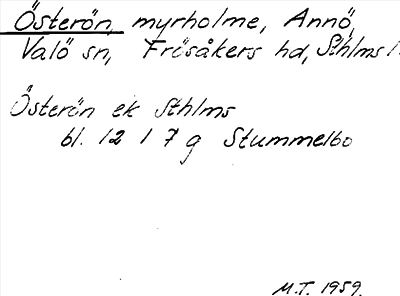 Österön, myrholme, Annö,
Valö sn, Frösåkers hd, Sthlms l.
Österön ek Sthlms
bl. 12 I 7 g Stummelbo
M.T. 1959.